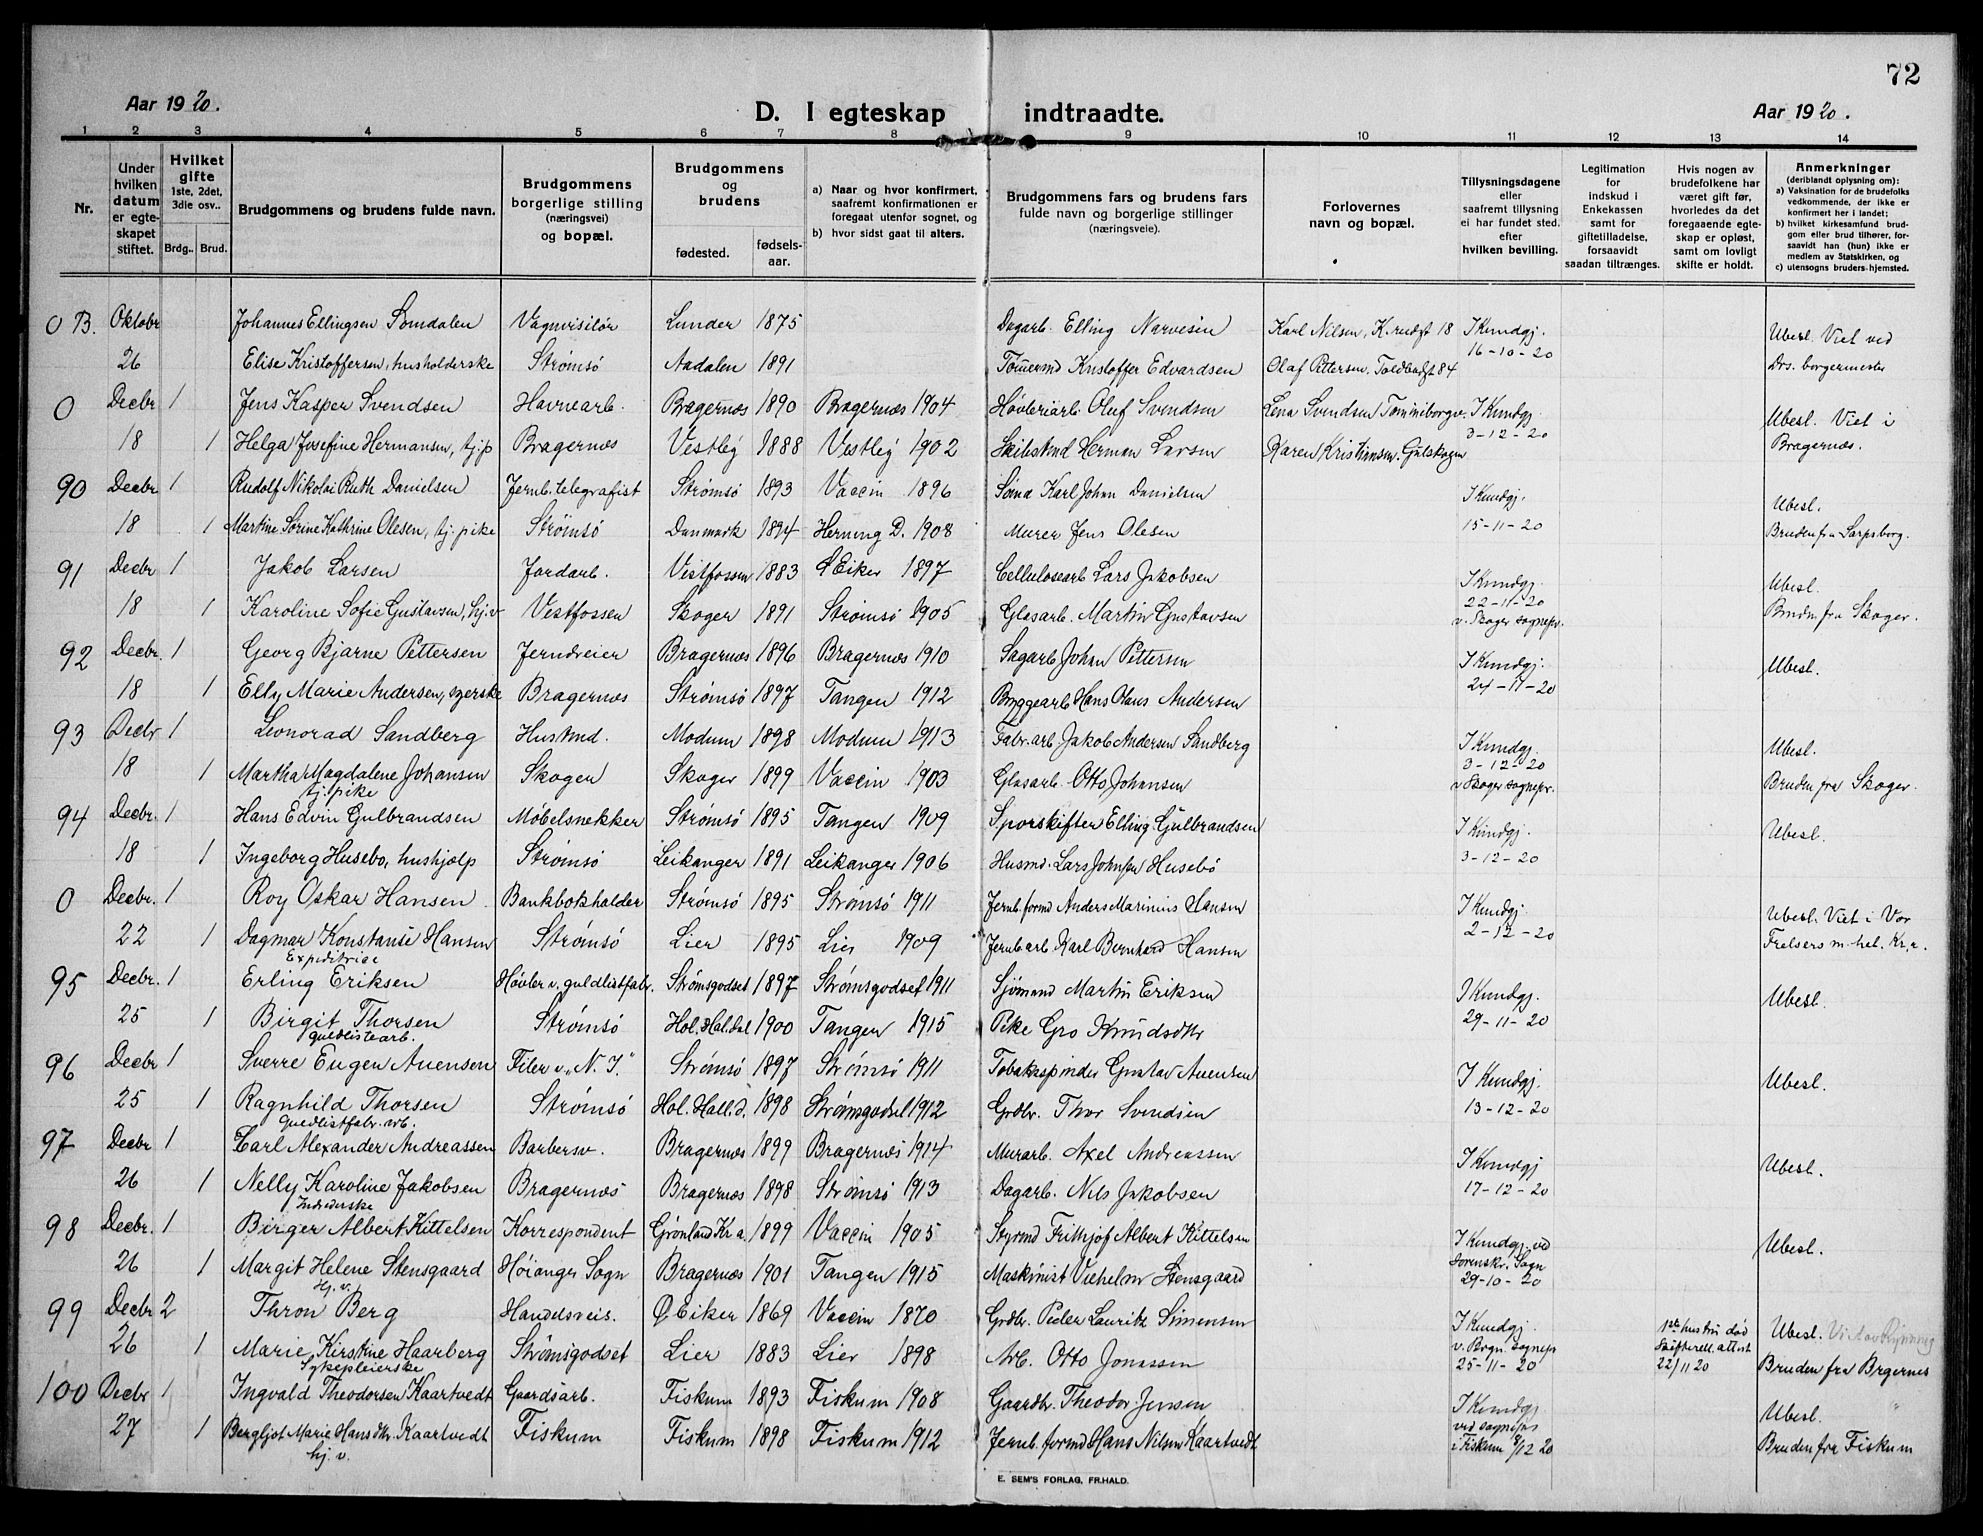 72
Aar 1920.
D. I egteskap indtraadte.
Aar 1920.
1 2 3 4 5 6 7 8 9 10 11 12 13 14
Nr.
Under hvilken datum er egte-skapet stiftet.
Hvilket gifte 1ste, 2det, 3die osv..
Brdg.. Brud.
Brudgommens og brudens fulde navn.
Brudgommens borgerlige stilling (næringsvei) og bopæl.
Brudgommens og brudens
fødested. fødsels-aar.
a) Naar og hvor konfirmert, saafremt konfirmationen er foregaat utenfor sognet, og
b) hvor sidst gaat til alters.
Brudgommens fars og brudens fars fulde navn og borgerlige stillinger (næringsveie).
Forlovernes navn og bopæl.
Tillysningsdagene eller saafremt tillysning ei har fundet sted. efter hvilken bevilling.
Legitimation for indskud i Enkekassen samt for giftetilladelse, forsaavidt saadan tiltrænges.
Hvis nogen av brudefolkene har været gift før, hvorledes da det foregaaende egte-skap er opløst, samt om lovligt skifte er holdt.
Anmerkninger (deriblandt oplysning om): a) Vaksination for de brudefolks vedkommende, der ikke er konfirmert her i landet; b) hvilket kirkesamfund brud-gom eller brud tilhører, for-saavidt han (hun) ikke er medlem av Statskirken, og c) utensogns bruders-hjemsted.
0 B. Oktobr Johannes Ellingsen Somdalen Vagnvisitør Lunder 1875 Dagarb. Elling Narvesen Karl Nilsen, K.rudgt 18 I Kundgj. 16-10-20 Ubesl. Viet ved
26 Elise Kristoffersen, husholderske Strømsø Aadalen 1891 Tømmermd Kristoffer Edvardsen Olaf Pettersen. Toldbodgt 84 Drs. borgermester
0 Decbr 1 Jens Kasper Svendsen Havnearb. Bragernæs 1890 Bragernæs 1904 Høvleriarb. Oluf Svendsen Lena Svendsen I Kundgj. 3-12-20 Ubesl. Viet i
18 1 Helga Josefine Hermansen, tj.p Bragernæs Vestby 1888 Vestby 1902 Herman Larsen Karen Kristiansen. Gulskogen Bragernæs.
90 Decbr 1 Rudolf Nikolai Ruth Danielsen Jernb. telegrafist Strømsø 1893 Vaccin 1896 Sømd Karl Johan Danielsen I Kundgj. Ubesl.
18 1 Martine Sørine Kathrine Olesen, tj. pike Strømsø Danmark 1894 Herning D. 1908 Murer Jens Olesen 15-11-20 Bruden fra Sarpsborg.
91 Decbr 1 Jakob Larsen Jordarb. Vestfossen 1883 Ø Eiker 1897 Cellulosearb Lars Jakobsen I Kundgj. Ubesl.
18 1 Karoline Sofie Gustavsen, hj.v Vestfossen Skoger 1891 Strømsø 1905 Glasarb. Martin Gustavsen 22-11-20 v. Skoger sognepr. Bruden fra Skoger.
92 Decbr. 1 Georg Bjarne Pettersen Jerndreier Bragernæs 1896 Bragernæs 1910 Sagarb Johan Pettersen I Kundgj. Ubesl.
18 1 Elly Marie Andersen, syerske Bragernæs Strømsø 1897 Tangen 1912 Bryggearb Hans Olaus Andersen 24-11-20
93 Decbr 1 Leonorad Sandberg Husmd. Modum 1898 Modum 1913 Fabr.arb. Jakob Andersen Sandberg I Kundgj. Ubesl.
18 1 Martha Magdalene Johansen tj. pike Skogen Skoger 1899 Vaccin 1903 Glasarb. Otto Johansen 3-12-20 v Skoger sognepr. Bruden fra Skoger.
94 Decbr. 1 Hans Edvin Gulbrandsen Møbelsnekker Strømsø 1895 Tangen 1909 Sporskifter Elling Gulbrandsen I Kundgj. Ubesl.
18 1 Ingeborg Husebø, hushjælp Strømsø Leikanger 1891 Leikanger 1906 Husmd. Lars Johnsen Husebø 3-12-20
0 Decbr. 1 Roy Oskar Hansen Bankbokholder Strømsø 1895 Strømsø 1911 Jernb. formd Anders Marinius Hansen I Kundgj. Ubesl. Viet i Vor
22 1 Dagmar Konstanse Hansen Expeditrice Strømsø Lier 1895 Lier 1909 Jernb arb. Karl Bernhard Hansen 2-12-20 Frelsers m.het. Kr.a.
95 Decbr. 1 Erling Eriksen Høvler v. guldlistfabr. Strømsgodset 1897 Strømsgodset 1911 Sjømand Martin Eriksen I Kundgj. Ubesl.
25 1 Birgit Thorsen guldlistearb. Strømsø Hol. Hal.dal 1900 Tangen 1915 Pike Gro Knudsdtr 29-11-20
96 Decbr 1 Sverre Eugen Auensen Filer v. "N. I." Strømsø 1897 Strømsø 1911 Tobakspinder Gustav Auensen I Kundgj. Ubesl.
25 1 Ragnhild Thorsen guldlistfabr. arb. Strømsø Hol. Hall.d. 1898 Strømsgodset 1912 Grdbr. Thor Svendsen 13-12-20
97 Decbr 1 Carl Alexander Andreassen Barbersv. Bragernæs 1899 Bragernæs 1914 Murarb. Axel Andreassen I Kundgj Ubesl.
26 1 Nelly Karoline Jakobsen Bragernæs Bragernæs 1898 Strømsø 1913 Dagarb. Nils Jakobsen 17-12-20
98 Decbr. 1 Birger Albert Kittelsen Korrespondent Grønland Kr a. 1899 Vaccin 1905 Styrmd Frithjof Albert Kittelsen I Kundgj. ved Ubesl.
26 1 Margit Helene Stensgaard Hj. v. Høianger Sogn Bragernæs 1901 Tangen 1915 Maskinist Vilhelm Stensgaard Sorenskr. Sogn 29-10-20
99 Decbr 2 Thron Berg Handelsreis. Ø Eiker 1869 Vaccin 1870 Grdbr. Peder Lauritz Simensen I Kundgj. 1ste hustru død Ubesl. Viet av Rynning
26 1 Marie Kirstine Haarberg Sykepleierske Strømsgodset Lier 1883 Lier 1898 Arb. Otto Jonassen v. Brgn. sognepr 25-11-20 Skifterett. attest 22/11 20 Bruden fra Brgernes
100 Decbr 1 Ingvald Theodorsen Kaartvedt Gaardsarb. Fiskum 1893 Fiskum 1908 Gaardbr. Theodor Jensen I Kundgj Ubesl. "
27 1 Bergljot Marie Hansdtr. Kaartvedt hj. v. Fiskum Fiskum 1898 Fiskum 1912 Jernb. formd Hans Nilsen Kaartvedt ved sognepr i Fiskum 8/12 20 Bruden fra Fiskum
E. SEM'S FORLAG, FR.HALD.